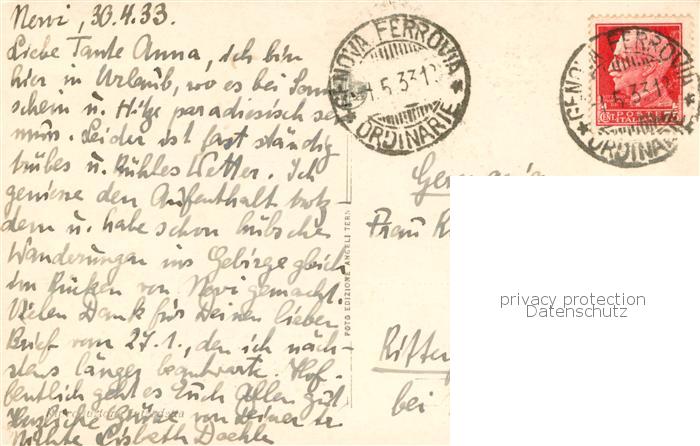 Nervi, 30.4.33.
Liebe Tante Anna, ich bin
hier in Urlaub, wo es bei Sonn
schein u. Hitze paradiesisch sein
muss. Leider ist fast ständig
trübes u. kühles Wetter. Ich
geniesse den Aufenthalt trotz
dem u. habe schon hübsche
Wanderungen ins Gebirge gleich
im Rücken von Nervi gemacht.
Vielen Dank für Deinen lieben
Brief vom 27.1., den ich näch-
stens länger beantworte. Hof-
fentlich geht es Euch Allen gut
Herzliche Grüsse von Deiner
Nichte Lisbeth
GENOVA FERROVIA
1.5.33.1
ORDINARIE
GENOVA FERROVIA
5.33.1
ORDINARIE
POSTE
ITALIANE
CENT. 75
Frau
bei
FOTO EDIZIONE ANGELI TERNI
privacy protection
Datenschutz